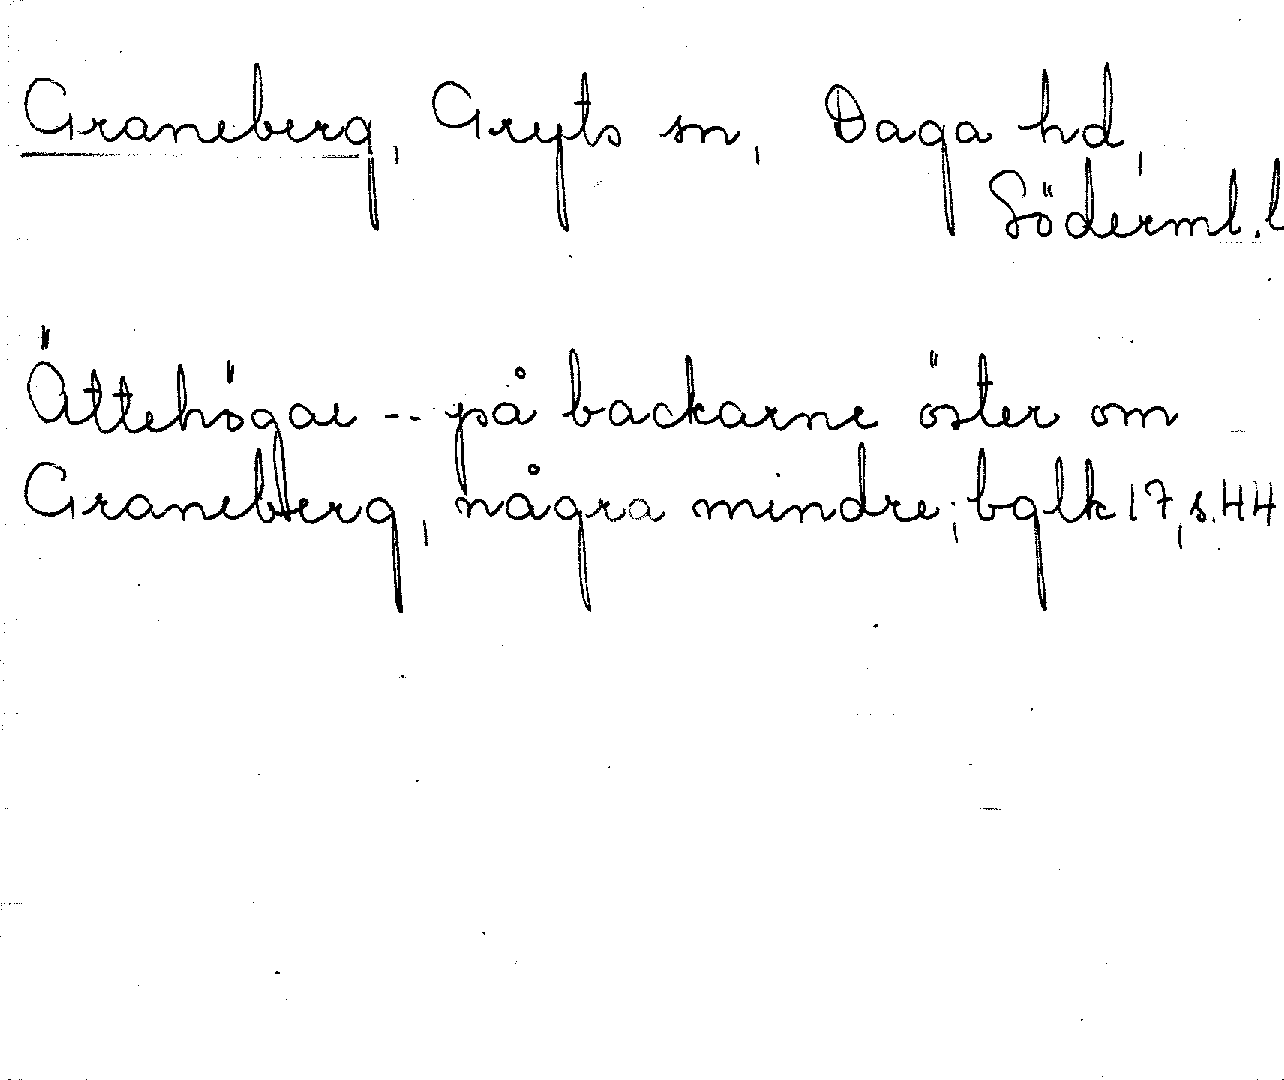 Graneberg, Gryts sn, Daga hd,
Söderml. l
Ättehögar -- på backarne öster om
Graneberg, några mindre; bglk 17, s. 44